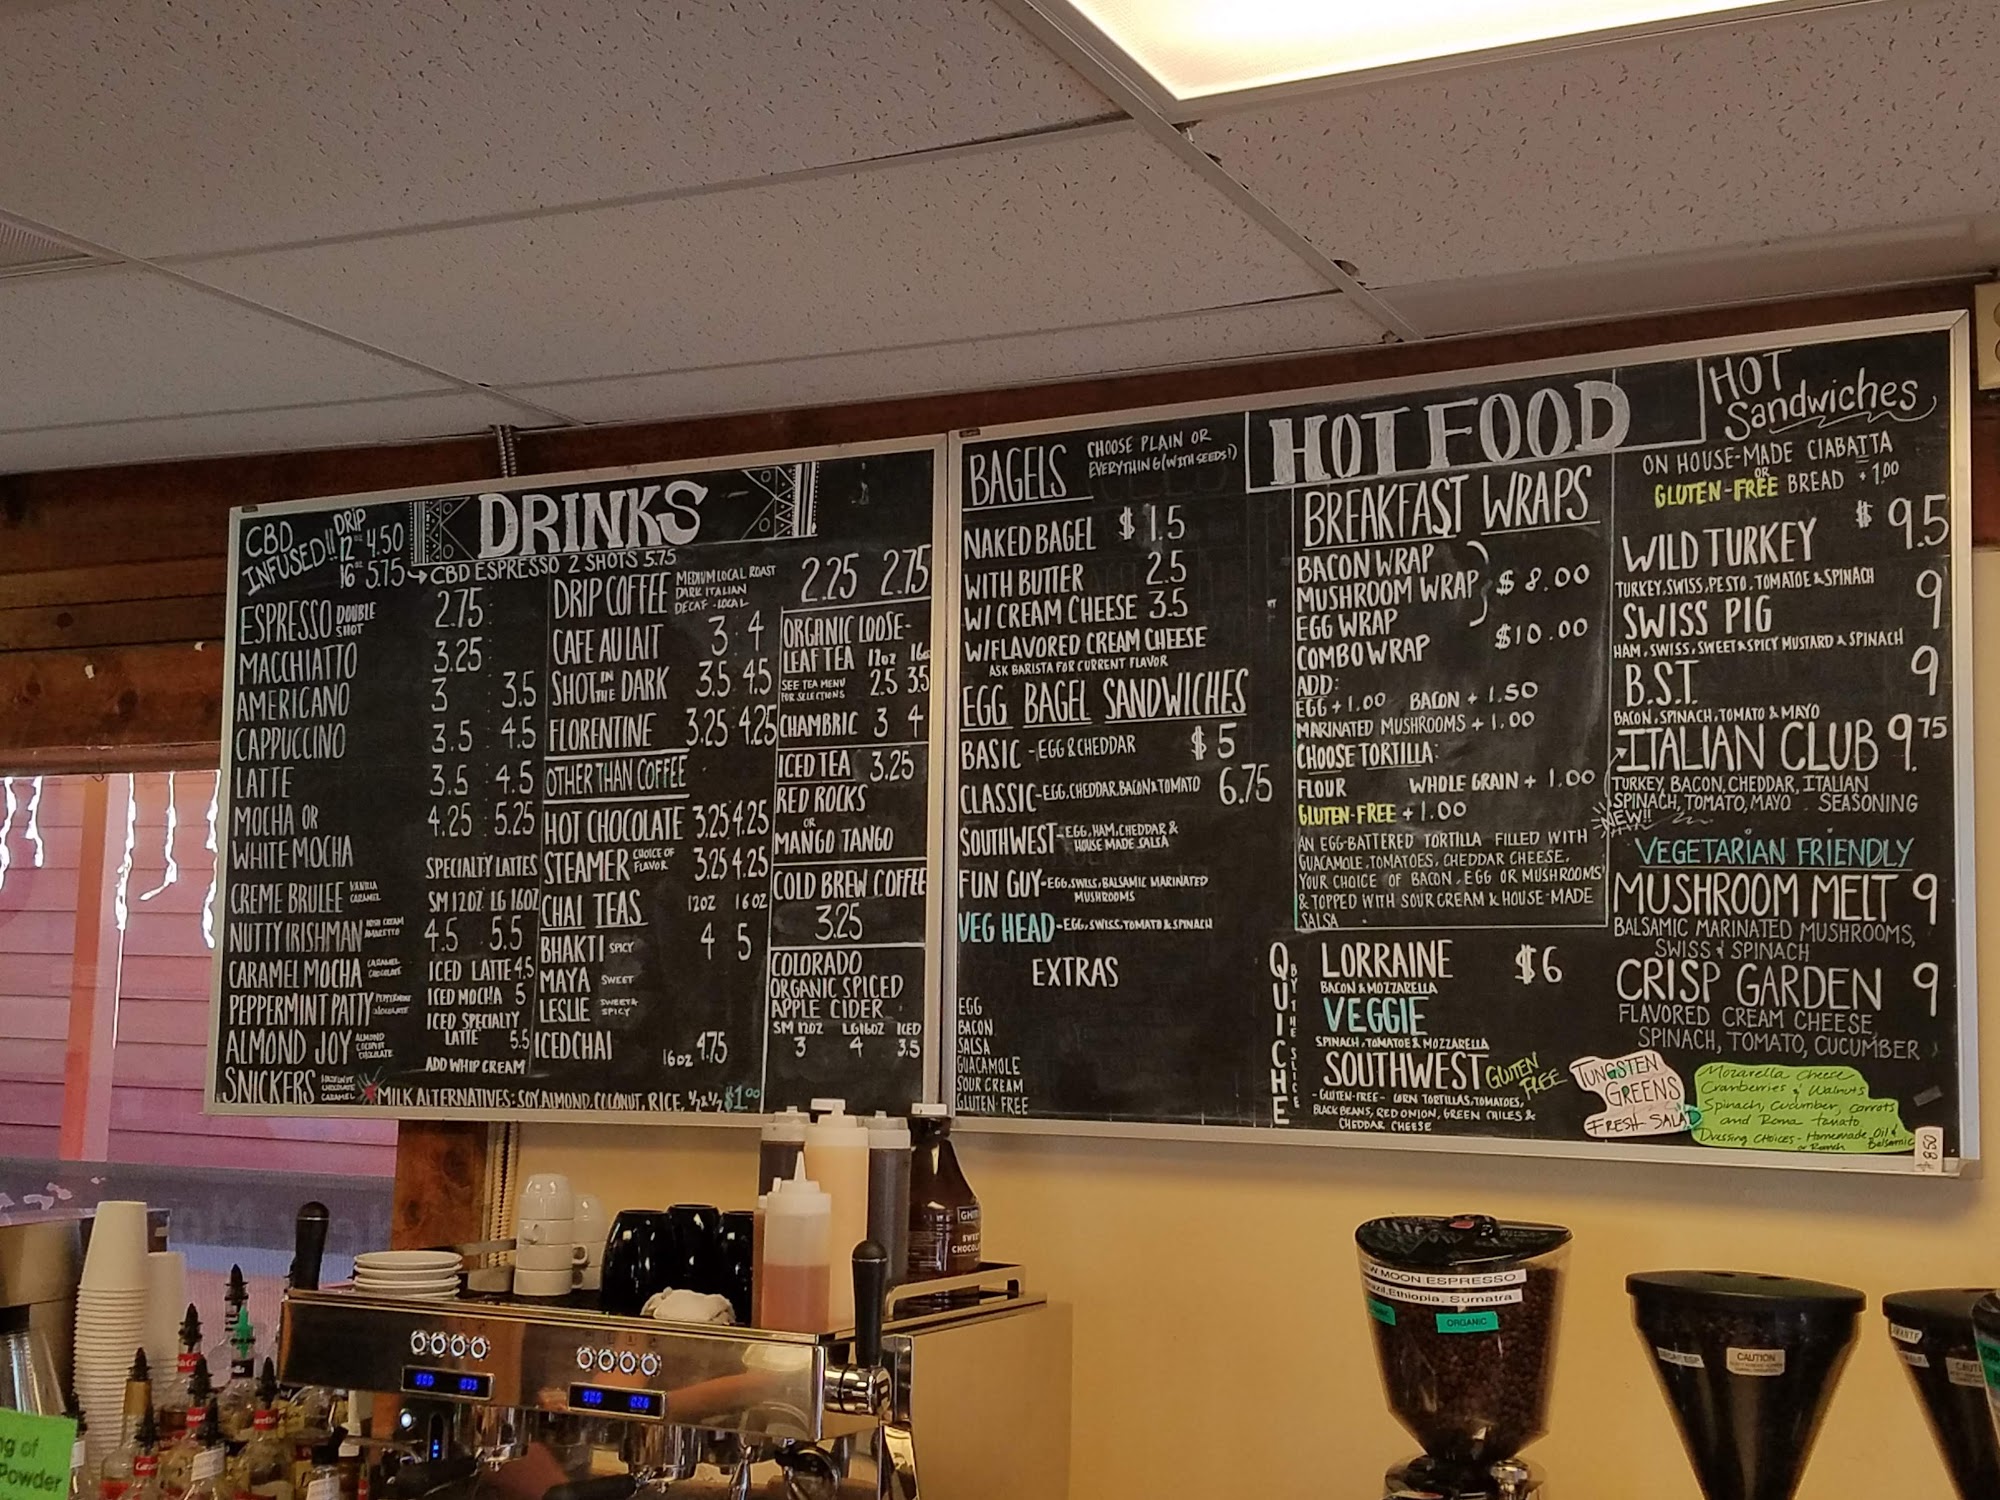 CBD INFUSED!!
DRIP
12oz 4.50
16oz 5.75
DRINKS
CBD ESPRESSO 2 SHOTS 5.75
ESPRESSO DOUBLE SHOT 2.75
MACCHIATTO 3.25
AMERICANO 3 3.5
CAPPUCCINO 3.5 4.5
LATTE 3.5 4.5
MOCHA OR
WHITE MOCHA 4.25 5.25
SPECIALTY LATTES
SM 12OZ LG 16OZ
4.5 5.5
CREME BRULEE VANILLA CARAMEL
NUTTY IRISHMAN IRISH CREAM AMARETTO
CARAMEL MOCHA CARAMEL CHOCOLATE
PEPPERMINT PATTY PEPPERMINT CHOCOLATE
ALMOND JOY ALMOND COCONUT CHOCOLATE
SNICKERS HAZELNUT CHOCOLATE CARAMEL
ICED LATTE 4.5
ICED MOCHA 5
ICED SPECIALTY
LATTE 5.5
ADD WHIP CREAM
MILK ALTERNATIVES: SOY, ALMOND, COCONUT, RICE, ½ & ½ $1.00
DRIP COFFEE MEDIUM LOCAL ROAST
DARK ITALIAN
DECAF - LOCAL
2.25 2.75
CAFE AU LAIT 3 4
SHOT IN THE DARK 3.5 4.5
FLORENTINE 3.25 4.25
OTHER THAN COFFEE
HOT CHOCOLATE 3.25 4.25
STEAMER CHOICE OF FLAVOR 3.25 4.25
CHAI TEAS 12OZ 16OZ
BHAKTI SPICY 4 5
MAYA SWEET
LESLIE SWEET & SPICY
ICED CHAI 16oz 4.75
ORGANIC LOOSE-
LEAF TEA 12oz 16oz
SEE TEA MENU FOR SELECTIONS 2.5 3.5
CHAMBRIC 3 4
ICED TEA 3.25
RED ROCKS
OR
MANGO TANGO
COLD BREW COFFEE
3.25
COLORADO
ORGANIC SPICED
APPLE CIDER
SM 12OZ LG 16OZ ICED
3 4 3.5
BAGELS CHOOSE PLAIN OR
EVERYTHING (WITH SEEDS!)
NAKED BAGEL $1.5
WITH BUTTER 2.5
W/ CREAM CHEESE 3.5
W/FLAVORED CREAM CHEESE
ASK BARISTA FOR CURRENT FLAVOR
EGG BAGEL SANDWICHES
BASIC - EGG & CHEDDAR $5
CLASSIC - EGG, CHEDDAR, BACON & TOMATO 6.75
SOUTHWEST - EGG, HAM, CHEDDAR &
HOUSE MADE SALSA
FUN GUY - EGG, SWISS, BALSAMIC MARINATED
MUSHROOMS
VEG HEAD - EGG, SWISS, TOMATO & SPINACH
EXTRAS
EGG
BACON
SALSA
GUACAMOLE
SOUR CREAM
GLUTEN-FREE
HOT FOOD
BREAKFAST WRAPS
BACON WRAP
MUSHROOM WRAP $8.00
EGG WRAP
COMBO WRAP $10.00
ADD:
EGG + 1.00 BACON + 1.50
MARINATED MUSHROOMS + 1.00
CHOOSE TORTILLA:
FLOUR WHOLE GRAIN + 1.00
GLUTEN-FREE + 1.00
AN EGG-BATTERED TORTILLA FILLED WITH
GUACAMOLE, TOMATOES, CHEDDAR CHEESE,
YOUR CHOICE OF BACON, EGG OR MUSHROOMS
& TOPPED WITH SOUR CREAM & HOUSE-MADE
SALSA
QUICHE
BY THE SLICE
LORRAINE $6
BACON & MOZZARELLA
VEGGIE
SPINACH, TOMATOE & MOZZARELLA
SOUTHWEST GLUTEN FREE
- GLUTEN-FREE - CORN TORTILLAS, TOMATOES,
BLACK BEANS, RED ONION, GREEN CHILES &
CHEDDAR CHEESE
HOT
Sandwiches
ON HOUSE-MADE CIABATTA
OR
GLUTEN-FREE BREAD + 1.00
WILD TURKEY $9.5
TURKEY, SWISS, PESTO, TOMATOE & SPINACH
SWISS PIG 9
HAM, SWISS, SWEET & SPICY MUSTARD & SPINACH
B.S.T. 9
BACON, SPINACH, TOMATO & MAYO
ITALIAN CLUB 9.75
TURKEY, BACON, CHEDDAR, ITALIAN
SPINACH, TOMATO, MAYO SEASONING
NEW!!
VEGETARIAN FRIENDLY
MUSHROOM MELT 9
BALSAMIC MARINATED MUSHROOMS,
SWISS & SPINACH
CRISP GARDEN 9
FLAVORED CREAM CHEESE,
SPINACH, TOMATO, CUCUMBER
TUNGSTEN
GREENS
FRESH SALAD
Mozarella cheese
Cranberries & Walnuts
Spinach, Cucumber, carrots
and Roma tomato
Dressing choices - Homemade Oil & Balsamic
or Ranch
$8.50
SWEET
CHOCOL
W MOON ESPRESSO
Ethiopia, Sumatra
ORGANIC
CAUTION
ng of
Powder